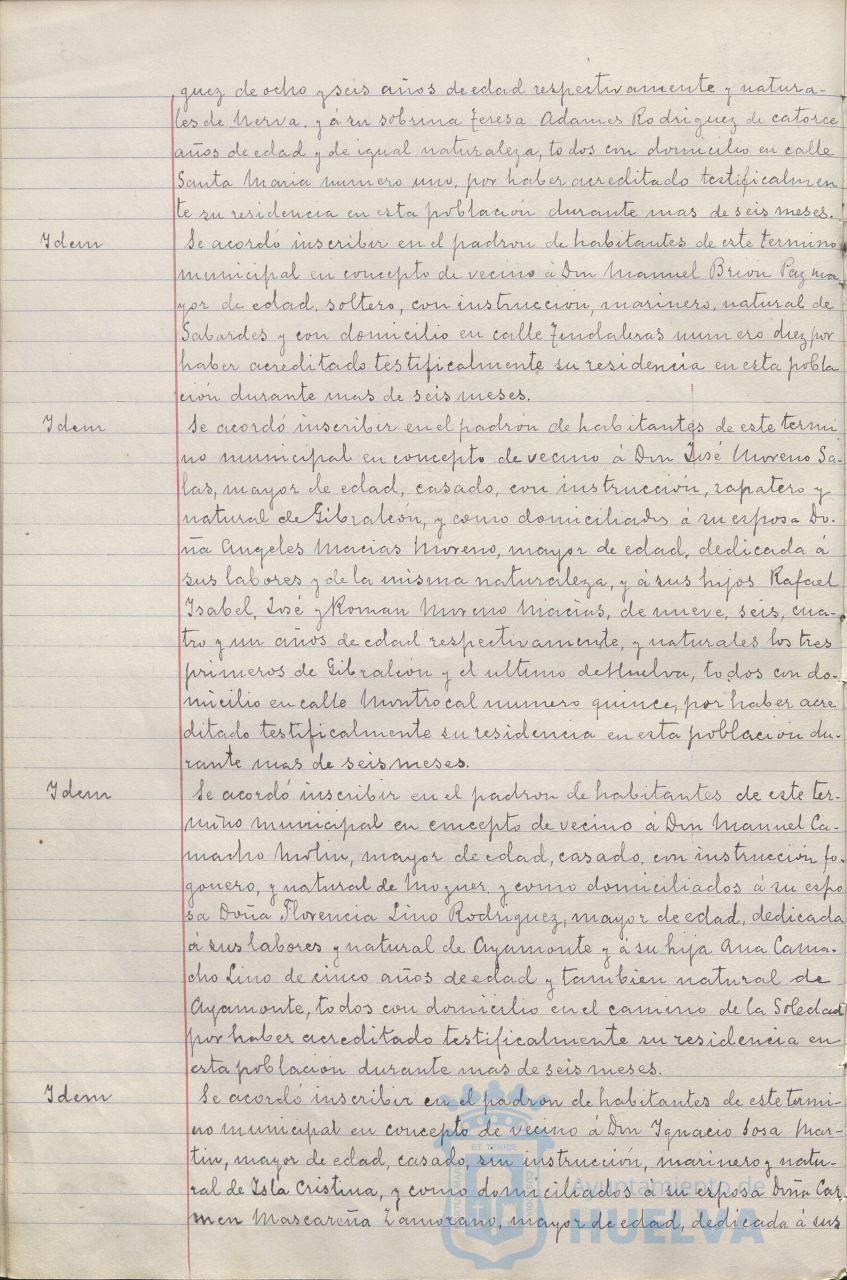 guez de ocho y seis años de edad respectivamente y natura-
les de Nerva, y á su sobrina Teresa Adames Rodriguez de catorce
años de edad y de igual naturaleza, todos con domicilio en calle
Santa Maria numero uno, por haber acreditado testificalmen
te su residencia en esta población durante mas de seis meses.
Idem
Se acordó inscribir en el padron de habitantes de este termino
municipal en concepto de vecino á Don Manuel Brion Paz ma
yor de edad, soltero, con instruccion, marinero, natural de
Sabardes y con domicilio en calle Tendaleras numero diez por
haber acreditado testificalmente su residencia en esta pobla
ción durante mas de seis meses.
Idem
Se acordó inscribir en el padron de habitantes de este termi
no municipal en concepto de vecino á Don José Moreno Sa-
las, mayor de edad, casado, con instrucción, zapatero y
natural de Gibraleón, y como domiciliados á su esposa Do-
ña Angeles Macias Moreno, mayor de edad, dedicada á
sus labores y de la misma naturaleza, y á sus hijos Rafael
Isabel, José y Roman Moreno Macias, de nueve, seis, cua-
tro y un años de edad respectivamente, y naturales los tres
primeros de Gibraleón y el ultimo de Huelva, todos con do-
micilio en calle Montrocal numero quince, por haber acre
ditado testificalmente su residencia en esta poblacion du-
rante mas de seis meses.
Idem
Se acordó inscribir en el padron de habitantes de este ter-
mino municipal en concepto de vecino á Don Manuel Ca-
macho Molin, mayor de edad, casado, con instrucción fo-
gonero, y natural de Moguer, y como domiciliados á su espo
sa Doña Florencia Lino Rodriguez, mayor de edad, dedicada
á sus labores y natural de Ayamonte y á su hija Ana Cama-
cho Lino de cinco años de edad y tambien natural de
Ayamonte, todos con domicilio en el camino de la Soledad
por haber acreditado testificalmente su residencia en
esta población durante mas de seis meses.
Idem
Se acordó inscribir en el padron de habitantes de este termi-
no municipal en concepto de vecino á Don Ignacio Sosa Mar-
tin, mayor de edad, casado, sin instrucción, marinero y natu-
ral de Isla Cristina, y como domiciliados á su esposa Doña Car
men Mascareña Zamorano, mayor de edad, dedicada á sus
Ayuntamiento de
HUELVA